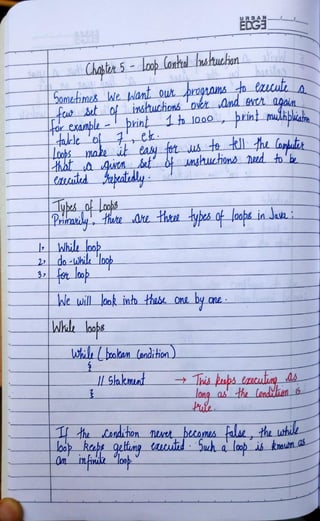 URBAN
EDGE
Chapter 5 - Loop Control Instruction
Sometimes we want our programs to execute a
few set of instructions over and over again
for example, print 1 to 1000, print multiplication
table of 7, etc.
Loops make it easy for us to tell the Computer
that a given set of instructions need to be
executed repeatedly.
Types of Loops
Primarily, there are three types of loops in Java:
1. While loop
2. do-while loop
3. for loop
We will look into these one by one.
While loops
While (boolean Condition)
{
// Statement → This keeps executing as
} long as the Condition is
true
If the Condition never becomes false, the while
loop keeps getting executed. Such a loop is known as
an infinite loop